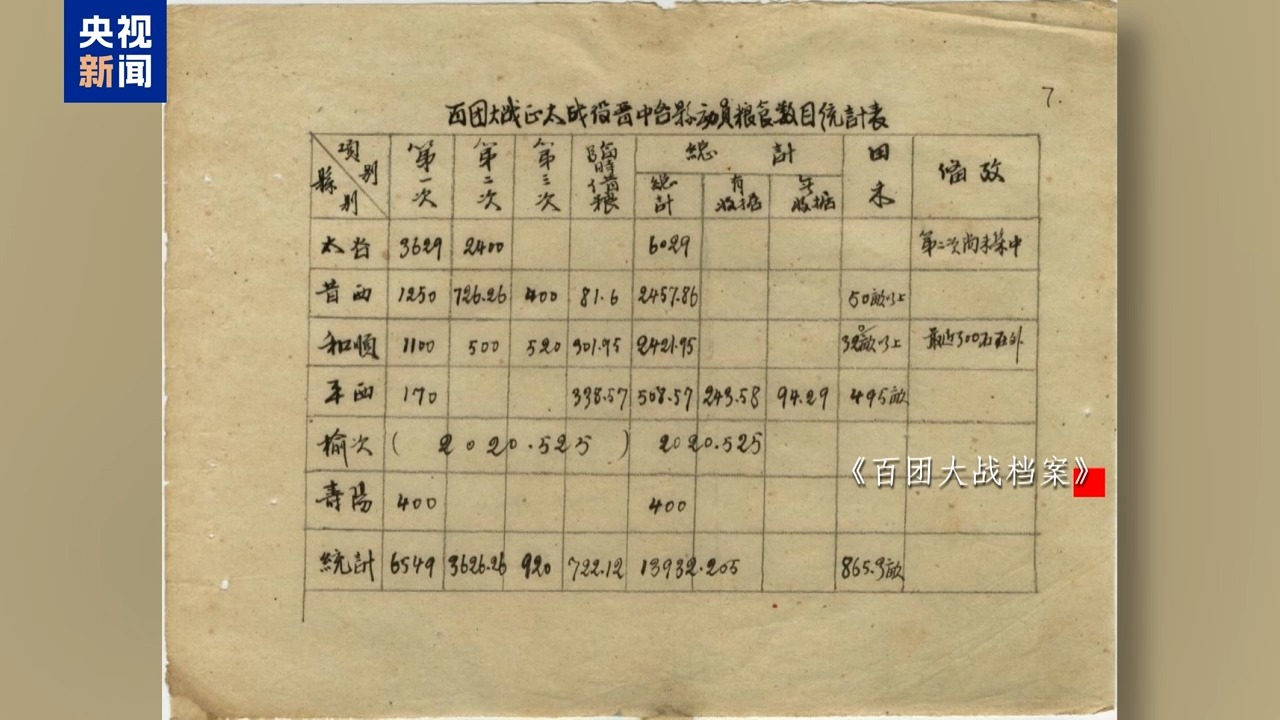 央视
新闻
7.
百团大战正太战役晋中各县动员粮食数目统计表
項别
縣别
第一次
第二次
第三次
臨時借粮
總計
總計
有收据
無收据
田禾
备攷
太谷 3629 2400 6029 第二次尚未集中
昔西 1250 726.26 400 81.6 2457.86 50畝以上
和順 1100 500 520 301.95 2421.95 320畝以上 最近300石在外
平西 170 338.57 508.57 243.58 94.29 495畝
榆次 ( 2020.525 ) 2020.525
壽陽 400 400
統計 6549 3626.26 920 722.12 13932.205 865.3畝
《百团大战档案》